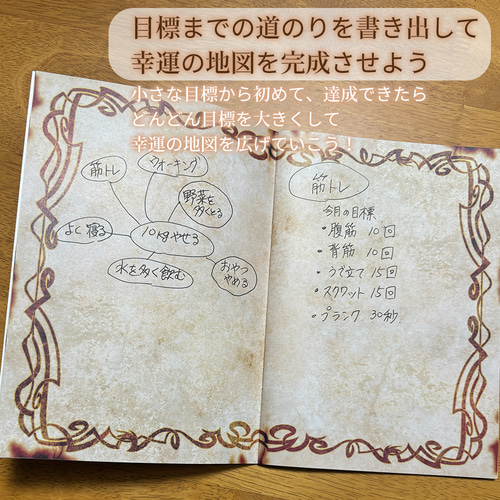 目標までの道のりを書き出して
幸運の地図を完成させよう
小さな目標から初めて、達成できたら
どんどん目標を大きくして
幸運の地図を広げていこう！
筋トレ
ウオーキング
野菜を
多くとる
よく寝る
10kgやせる
水を多く飲む
おやつ
やめる
筋トレ
今月の目標
・腹筋 10回
・背筋 10回
・うで立て 15回
・スクワット 15回
・プランク 30秒